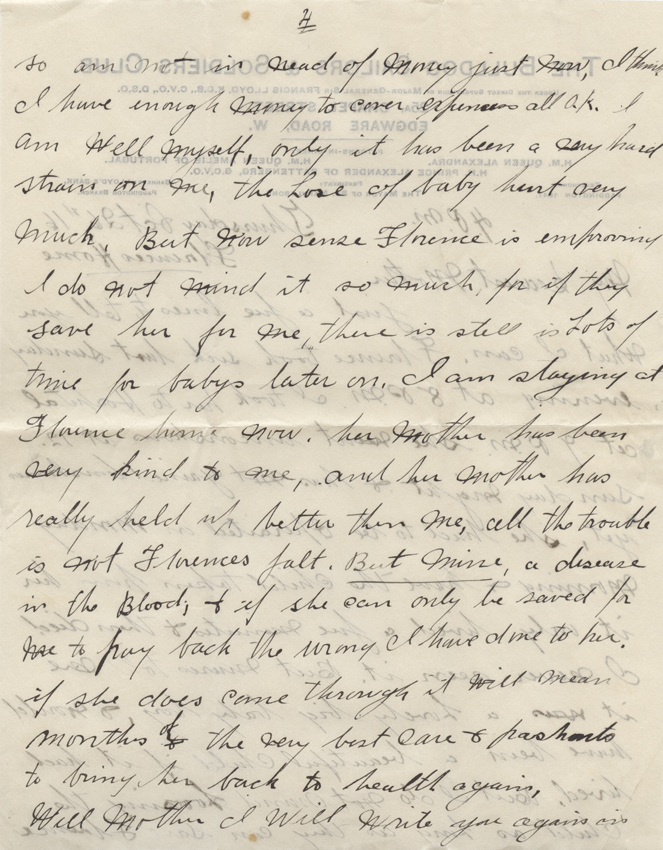 4
so am not in nead of money just now, I think
I have enough money to cover expenses all O.K. I
am well myself, only it has been a very hard
strain on me, the Lose of baby hurt very
much, But now sense Florence is emproving
I do not mind it so much, for if they
save her for me, there is still is Lots of
time for babys later on. I am staying at
Florence home now. her mother has been
very kind to me, and her mother has
really held up better then me, all the trouble
is not Florences falt. But Mine, a disease
in the Blood, & if she can only be saved for
me to pay back the wrong I have done to her.
if she does come through it will mean
months of the very best care & pashents
to bring her back to health again,
Well Mother I will write you again in